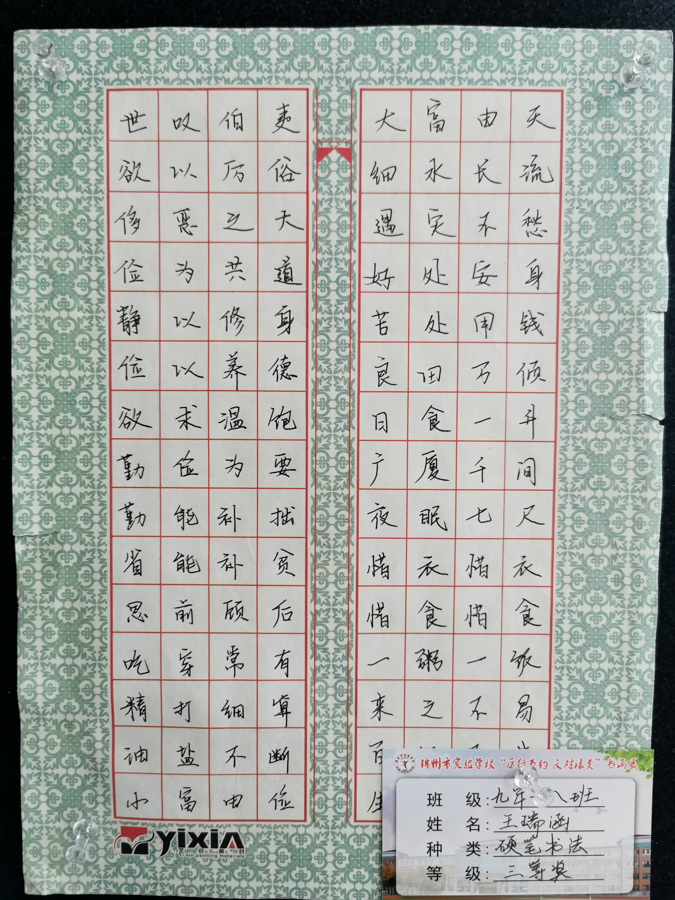 世叹伯夷
欲以厉俗
侈恶之大
俭为共道
静以修身
俭以养德
欲求温饱
勤俭为要
勤能补拙
省能补贫
思前顾后
吃穿常有
精打细算
油盐不断
小富由俭
大富由天
细水长流
遇灾不愁
好处安身
苦处用钱
良田万倾
日食一升
广厦千间
夜眠七尺
惜衣惜衣
惜食惜食
一粥一饭
来之不易
百
YIXIN
锦州市实验学校“厉行节约 反对浪费”书画
班 级:九年 八班
姓 名:王瑞涵
种 类:硬笔书法
等 级:三等奖